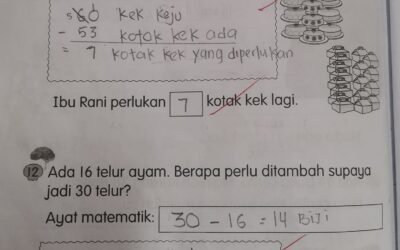 5 60 kek keju
- 53 kotak kek ada
= 7 kotak kek yang diperlukan
Ibu Rani perlukan 7 kotak kek lagi.
12 Ada 16 telur ayam. Berapa perlu ditambah supaya
jadi 30 telur?
Ayat matematik: 30 - 16 = 14 Biji